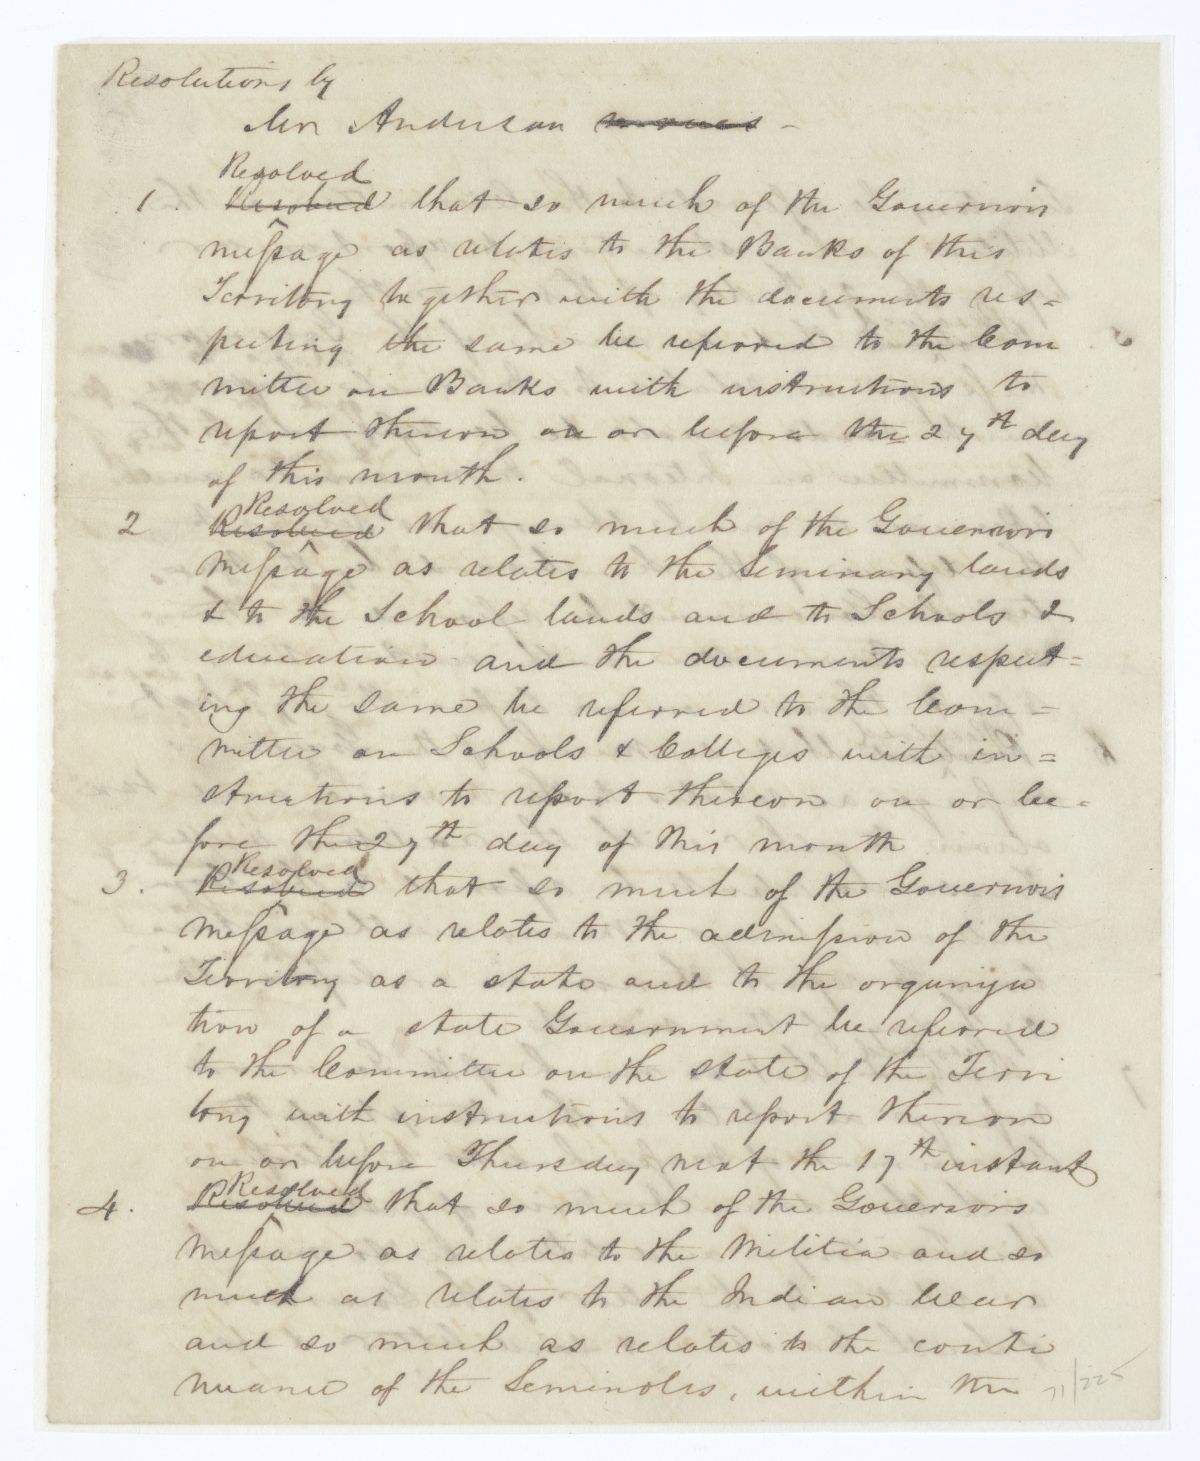 Resolutions by
Mr Anderson moves -
Resolved
1. Resolved that so much of the Governors
message as relates to the Banks of this
Territory together with the documents res=
pecting the same be referred to the Com
mittee on Banks with instructions to
report thereon on or before the 27th day
of this month.
Resolved
2 Resolved that so much of the Governors
Message as relates to the Seminary lands
& to the School lands and to Schools &
education and the documents respect=
ing the same be referred to the Com=
mittee on Schools & Colleges with in=
structions to report thereon on or be=
fore the 27th day of this month
Resolved
3. Resolved that so much of the Governors
Message as relates to the admission of the
Territory as a state and to the organiza
tion of a state Government be referred
to the Committee on the state of the Terri
tory with instructions to report thereon
on or before Thursday next the 17th instant
Resolved
4. Resolved that so much of the Governors
Message as relates to the Militia and so
much as relates to the Indian
and so much as relates to the conti
nuance of the Seminoles, within the
71/225